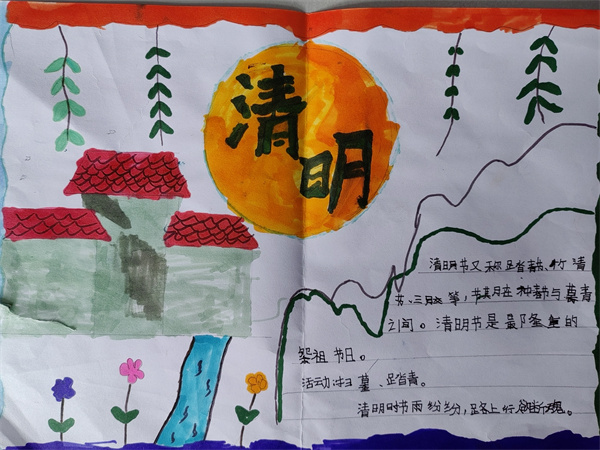 清明
清明节又称踏青节、行清
节、三月节等，节期在仲春与暮春
之间。清明节是最隆重的
祭祖节日。
活动:扫墓、踏青。
清明时节雨纷纷，路上行欲断魂。